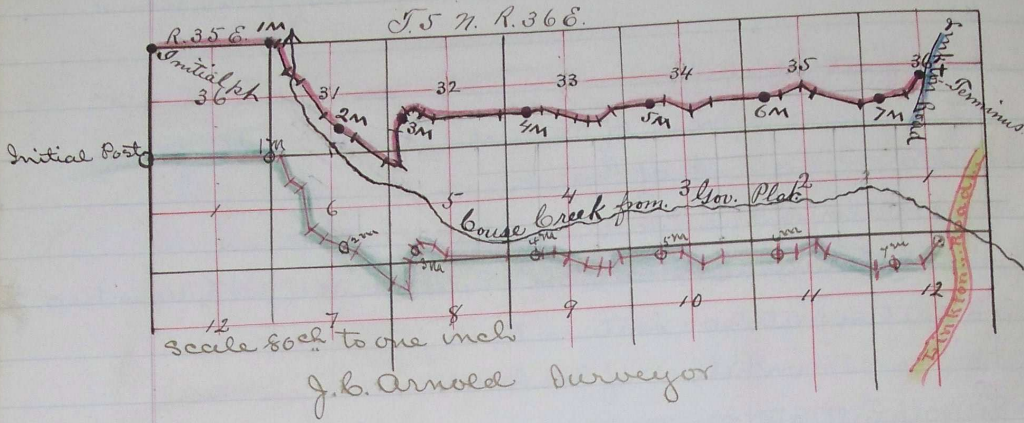 T. 5 N. R. 36 E.
R. 35 E. 1M
Initial pt
36
31
32
33
34
35
36
2M
3M
4M
5M
6M
7M
Linkton Road
Terminus
Initial Post
1M
1
6
5
4
3
2
1
Couse Creek from Gov. Plat
2M
3M
4M
5M
M
7M
12
7
8
9
10
11
12
Linkton Road
Scale 80ch to one inch
J. C. Arnold Surveyor